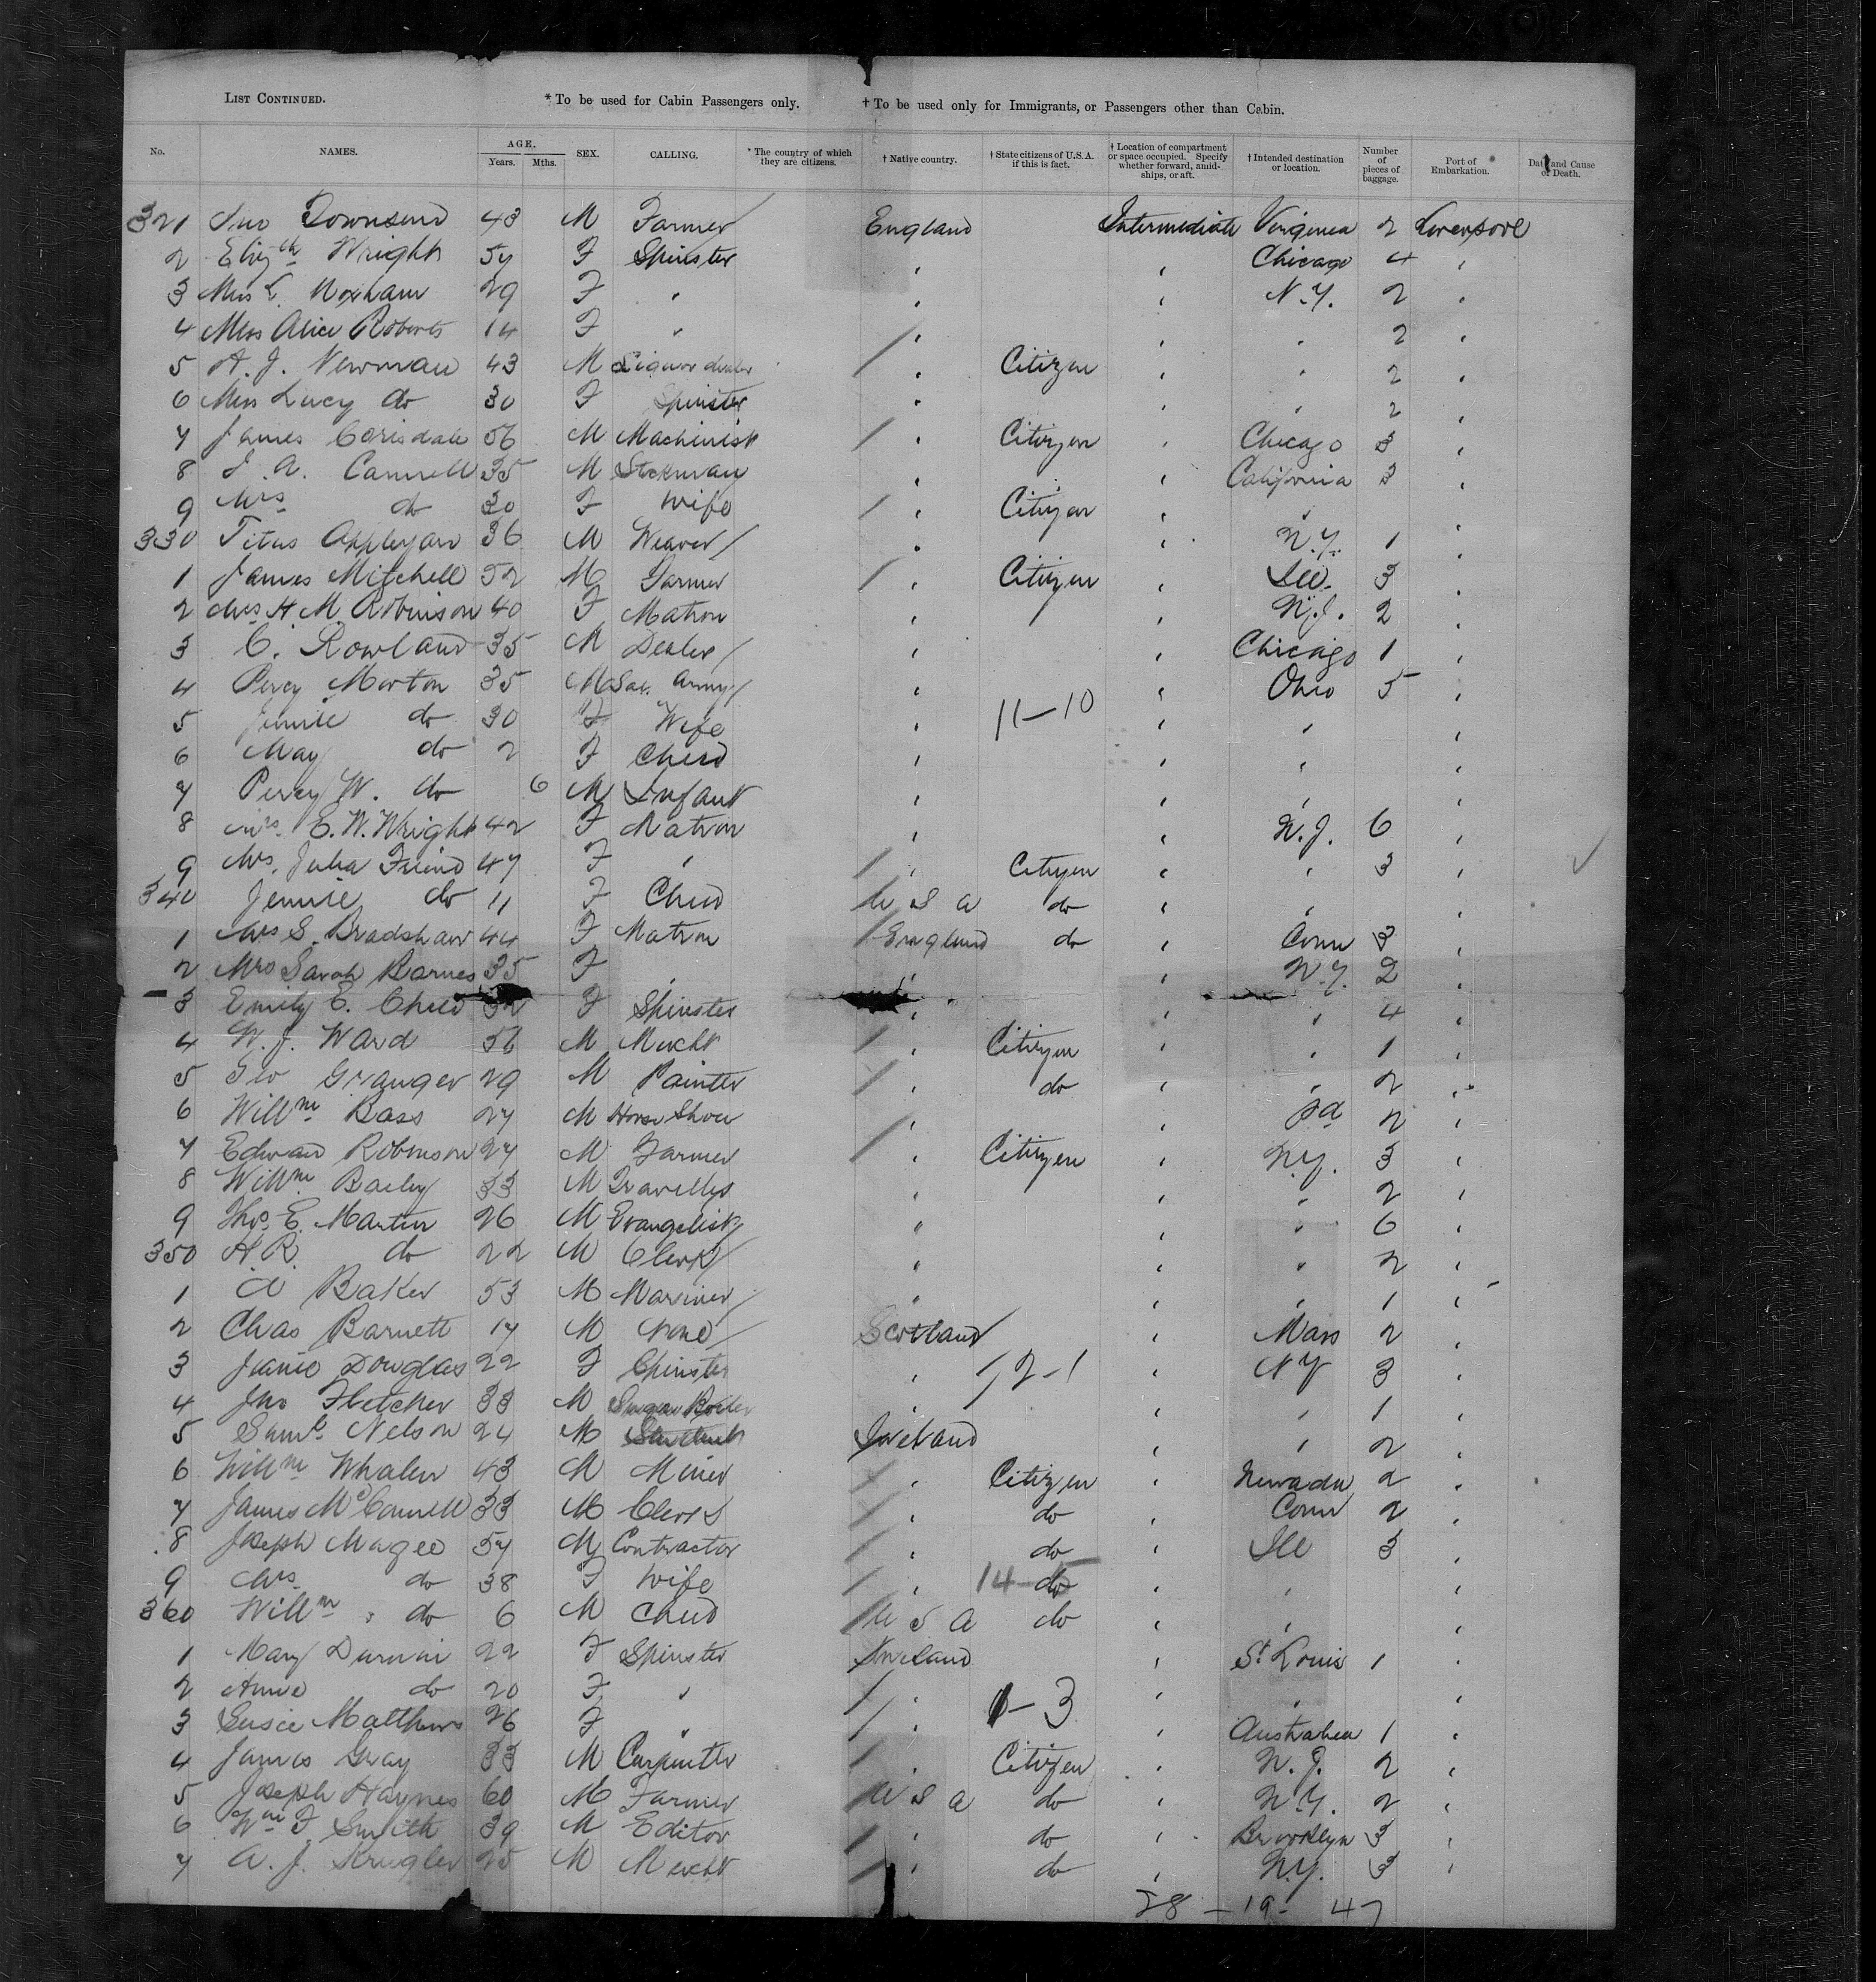 LIST CONTINUED. * To be used for Cabin Passengers only. † To be used only for Immigrants, or Passengers other than Cabin.
No. NAMES. AGE. Years. Mths. SEX. CALLING. * The country of which they are citizens. † Native country. † State citizens of U.S.A. if this is fact. † Location of compartment or space occupied. Specify whether forward, amidships, or aft. † Intended destination or location. Number of pieces of baggage. Port of Embarkation. Date and Cause of Death.
321 Jno Townsend 43 M Farmer England Intermediate Virginia 2 Liverpool
2 Elizth Wright 54 F Spinster " " Chicago 4 "
3 Miss L. Moxham 29 F " " " N.Y. 2 "
4 Miss Alice Roberts 14 F " " " " 2 "
5 A. J. Newman 43 M Liquor dealer " Citizen " " 2 "
6 Miss Lucy do 30 F Spinster " " " 2 "
7 James 56 M Machinist " Citizen " Chicago 3 "
8 J. A. Cannell 35 M Stockman " " California 3 "
9 Mrs do 30 F Wife " Citizen " " "
330 Titus Appleyard 36 M Weaver " " N.Y. 1 "
1 James Mitchell 52 M Farmer " Citizen " Ill. 3 "
2 Mrs H. M. Robinson 40 F Matron " " N.J. 2 "
3 C. Rowland 35 M Dealer " " Chicago 1 "
4 Percy Morton 35 M Sal. Army " " Ohio 5 "
5 Jennie do 30 F Wife " 11-10 " " "
6 May do 2 F Child " " " "
7 Percy W. do 6 M Infant " " " "
8 Mrs. E. W. Wright 42 F Matron " " N.J. 6 "
9 Mrs. Julia Friend 47 F " " Citizen " " 3 "
340 Jennie do 11 F Child U S A do " " "
1 Mrs S. Bradshaw 44 F Matron England do " Conn 3 "
2 Mrs Sarah Barnes 35 F " " " N.Y. 2 "
3 Emily E. Child 32 F Spinster " " " 4 "
4 W. J. Ward 56 M Mercht " Citizen " " 1 "
5 Geo Granger 29 M Painter " do " " 2 "
6 Willm Bass 27 M Horse Shoer " " Pa 2 "
7 Edward Robinson 27 M Farmer " Citizen " N.Y. 3 "
8 Willm Baily 33 M Traveller " " " 2 "
9 Thos. E. Martin 26 M Evangelist " " " 6 "
350 H. R. do 22 M Clerk " " " 2 "
1 A Baker 53 M Mariner " " " 1 "
2 Chas Barnett 17 M None Scotland " Mass 2 "
3 Janie Douglas 22 F Spinster " 12-1 " N Y 3 "
4 Jno Fletcher 33 M Sugar Boiler " " " 1 "
5 Saml. Nelson 24 M Student Ireland " " 2 "
6 Willm Whalen 43 M Miner " Citizen " Nevada 2 "
7 James McConnell 33 M Clerk " do " Conn 2 "
8 Joseph Magee 57 M Contractor " do " Ill 3 "
9 Mrs. do 38 F Wife " 14 do " " "
360 Willm do 6 M Child U S A do " " "
1 Mary 22 F Spinster Ireland " St. Louis 1 "
2 Annie do 20 F " " 1-3 " " "
3 Susie Matthews 26 F " " " Australia 1 "
4 James Gray 33 M Carpenter " Citizen " N.J. 2 "
5 Joseph Haynes 60 M Farmer U S A do " N.Y. 2 "
6 Wm F. Smith 39 M Editor " do " Brooklyn 3 "
7 A. J. Krugler 25 M Mercht " do " N.Y. 3 "
28 - 19 - 47